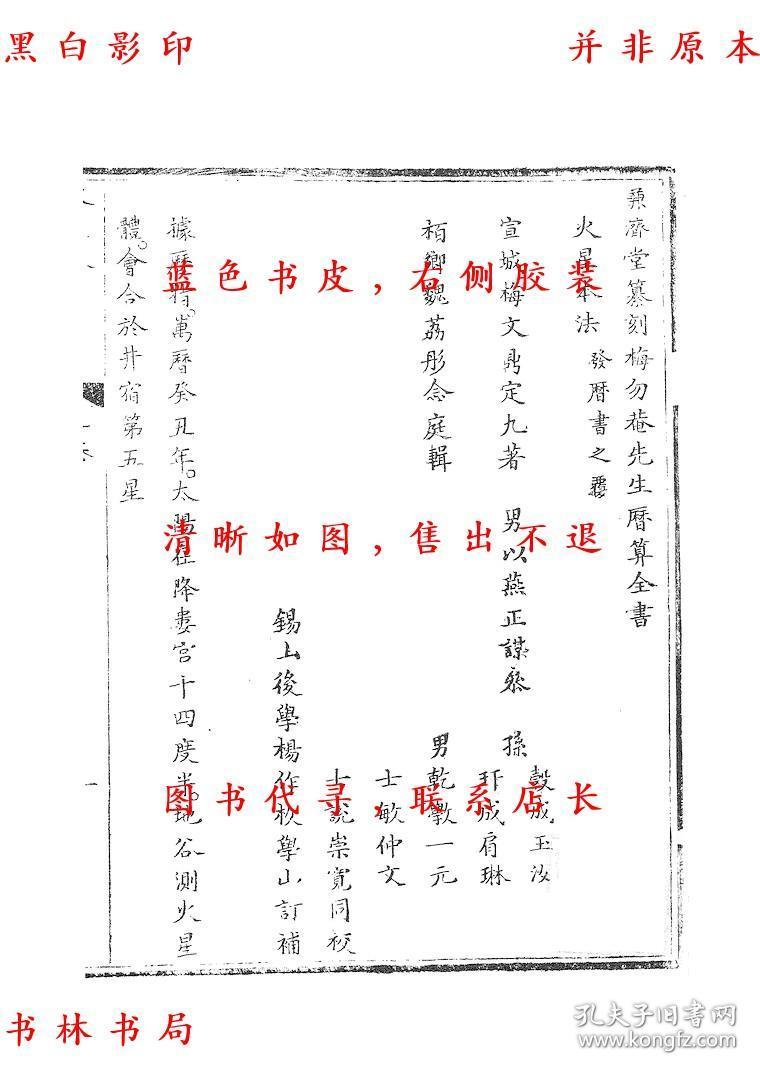 黑白影印
并非原本
兼濟堂纂刻梅勿菴先生曆算全書
火星本法 發曆書之覆
宣城梅文鼎定九著 男以燕正謀叅 孫
瑴成玉汝
玕成肩琳
栢鄉魏荔彤念庭輯 男乾斆一元
士敏仲文
士說崇寬同校
錫山後學楊作枚學山訂補
據曆指萬曆癸丑年太陽在降婁宮十四度半地谷測火星
體會合於井宿第五星
一
蓝色书皮，右侧胶装
清晰如图，售出不退
图书代寻，联系店长
书林书局
孔夫子旧书网
www.kongfz.com